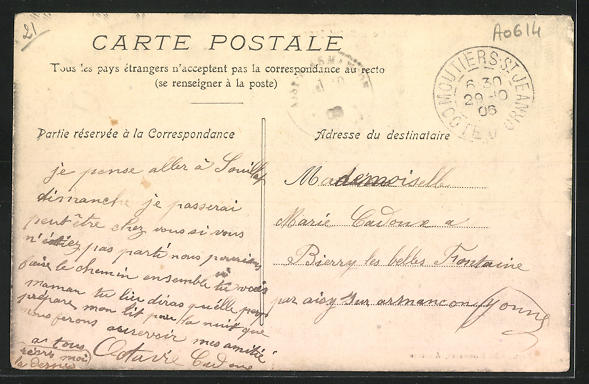 21
A0614
CARTE POSTALE
Tous les pays étrangers n'acceptent pas la correspondance au recto
(se renseigner à la poste)
MOUTIERS-ST JEAN
6 30
29 -10
06
CÔTE D'OR
Partie réservée à la Correspondance
Adresse du destinataire
je pense aller à
dimanche je passerai
peut être chez vous si vous
n'étiez pas parté nous
faire le chemin ensemble tu
maman tu lui diras qu'elle
prépare mon lit pour la nuit que
nous ferons mes amitié
a tous
Octavie Cadoux
Mademoiselle
Marie Cadoux a
Bierry les belles Fontaine
par aisy sur armancon Yonne